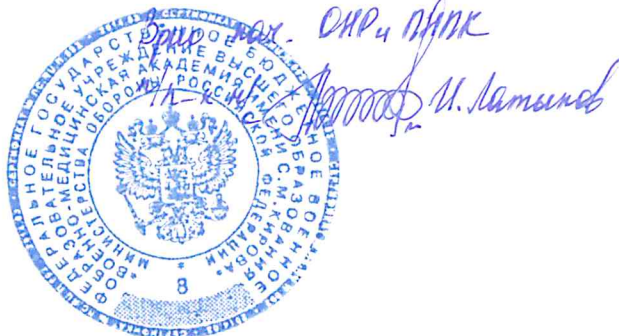 Врио нач. ОНР и ПНПК
п/п-к м/с И. Латыпов
ФЕДЕРАЛЬНОЕ ГОСУДАРСТВЕННОЕ БЮДЖЕТНОЕ ВОЕННОЕ
ОБРАЗОВАТЕЛЬНОЕ УЧРЕЖДЕНИЕ ВЫСШЕГО ОБРАЗОВАНИЯ
«ВОЕННО-МЕДИЦИНСКАЯ АКАДЕМИЯ ИМЕНИ С.М.КИРОВА»
МИНИСТЕРСТВА ОБОРОНЫ РОССИЙСКОЙ ФЕДЕРАЦИИ
* 8 *